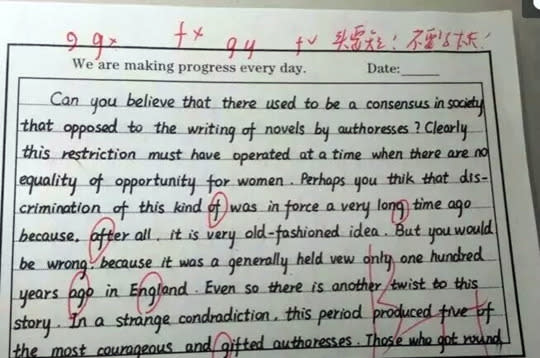 g gx fx gy fv 头要短！不要
We are making progress every day. Date:
Can you believe that there used to be a consensus in society
that opposed to the writing of novels by authoresses? Clearly
this restriction must have operated at a time when there are no
equality of opportunity for women. Perhaps you thik that dis-
crimination of this kind of was in force a very long time ago
because, after all, it is very old-fashioned idea. But you would
be wrong, because it was a generally held vew only one hundred
years ago in England. Even so there is another twist to this
story. In a strange condradiction, this period produced five of
the most courageous and gifted authoresses. Those who got round